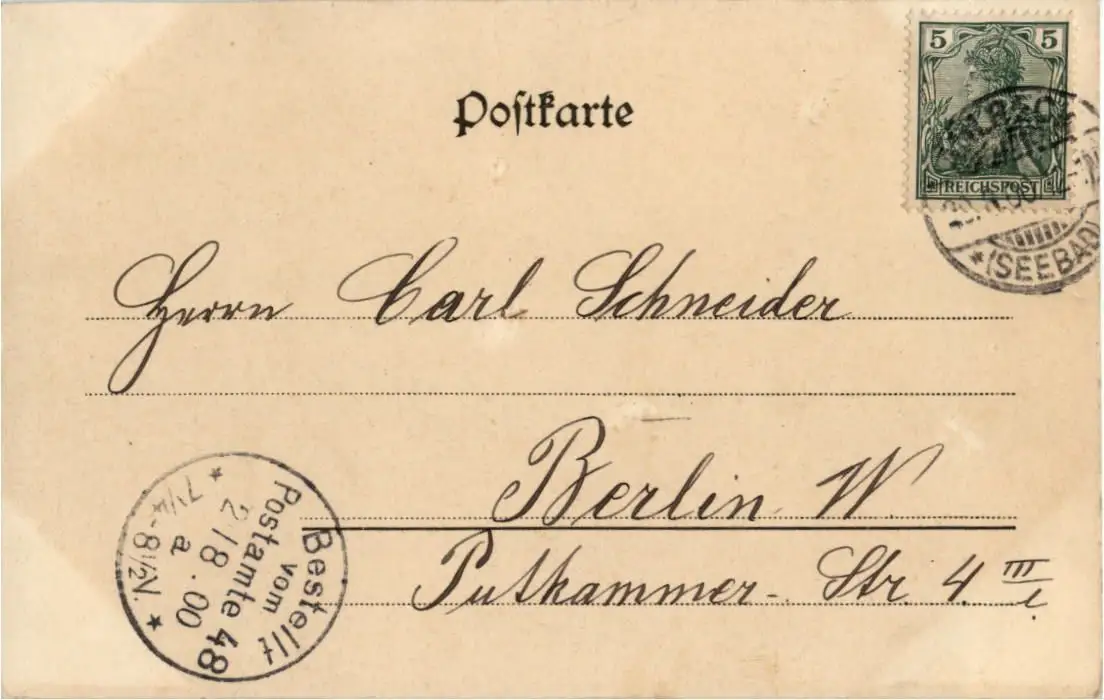 5 5
Postkarte
REICHSPOST
* (SEEBAD)
Herrn Carl Schneider
Berlin W
Putkammer-Str. 4 III
Bestellt
vom
Postamte 48
2/8.00
a
* 7¼-8½N *